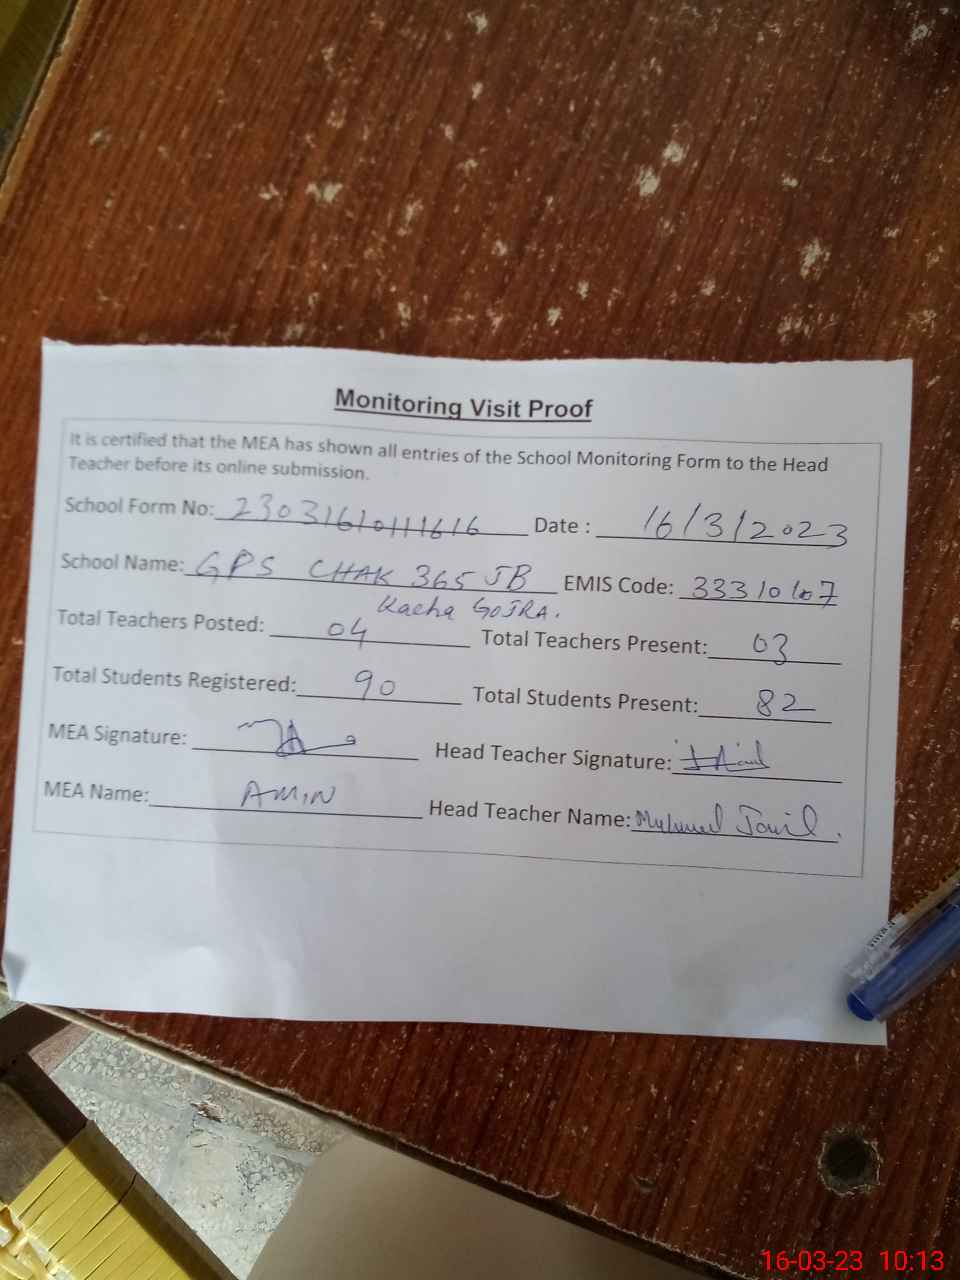 Monitoring Visit Proof
It is certified that the MEA has shown all entries of the School Monitoring Form to the Head
Teacher before its online submission.
School Form No: 23031610111616 Date : 16/3/2023
School Name: GPS CHAK 365 JB EMIS Code: 33310107
Kacha GOJRA.
Total Teachers Posted: 04 Total Teachers Present: 03
Total Students Registered: 90 Total Students Present: 82
MEA Signature: Head Teacher Signature:
MEA Name: AMIN Head Teacher Name:
16-03-23 10:13